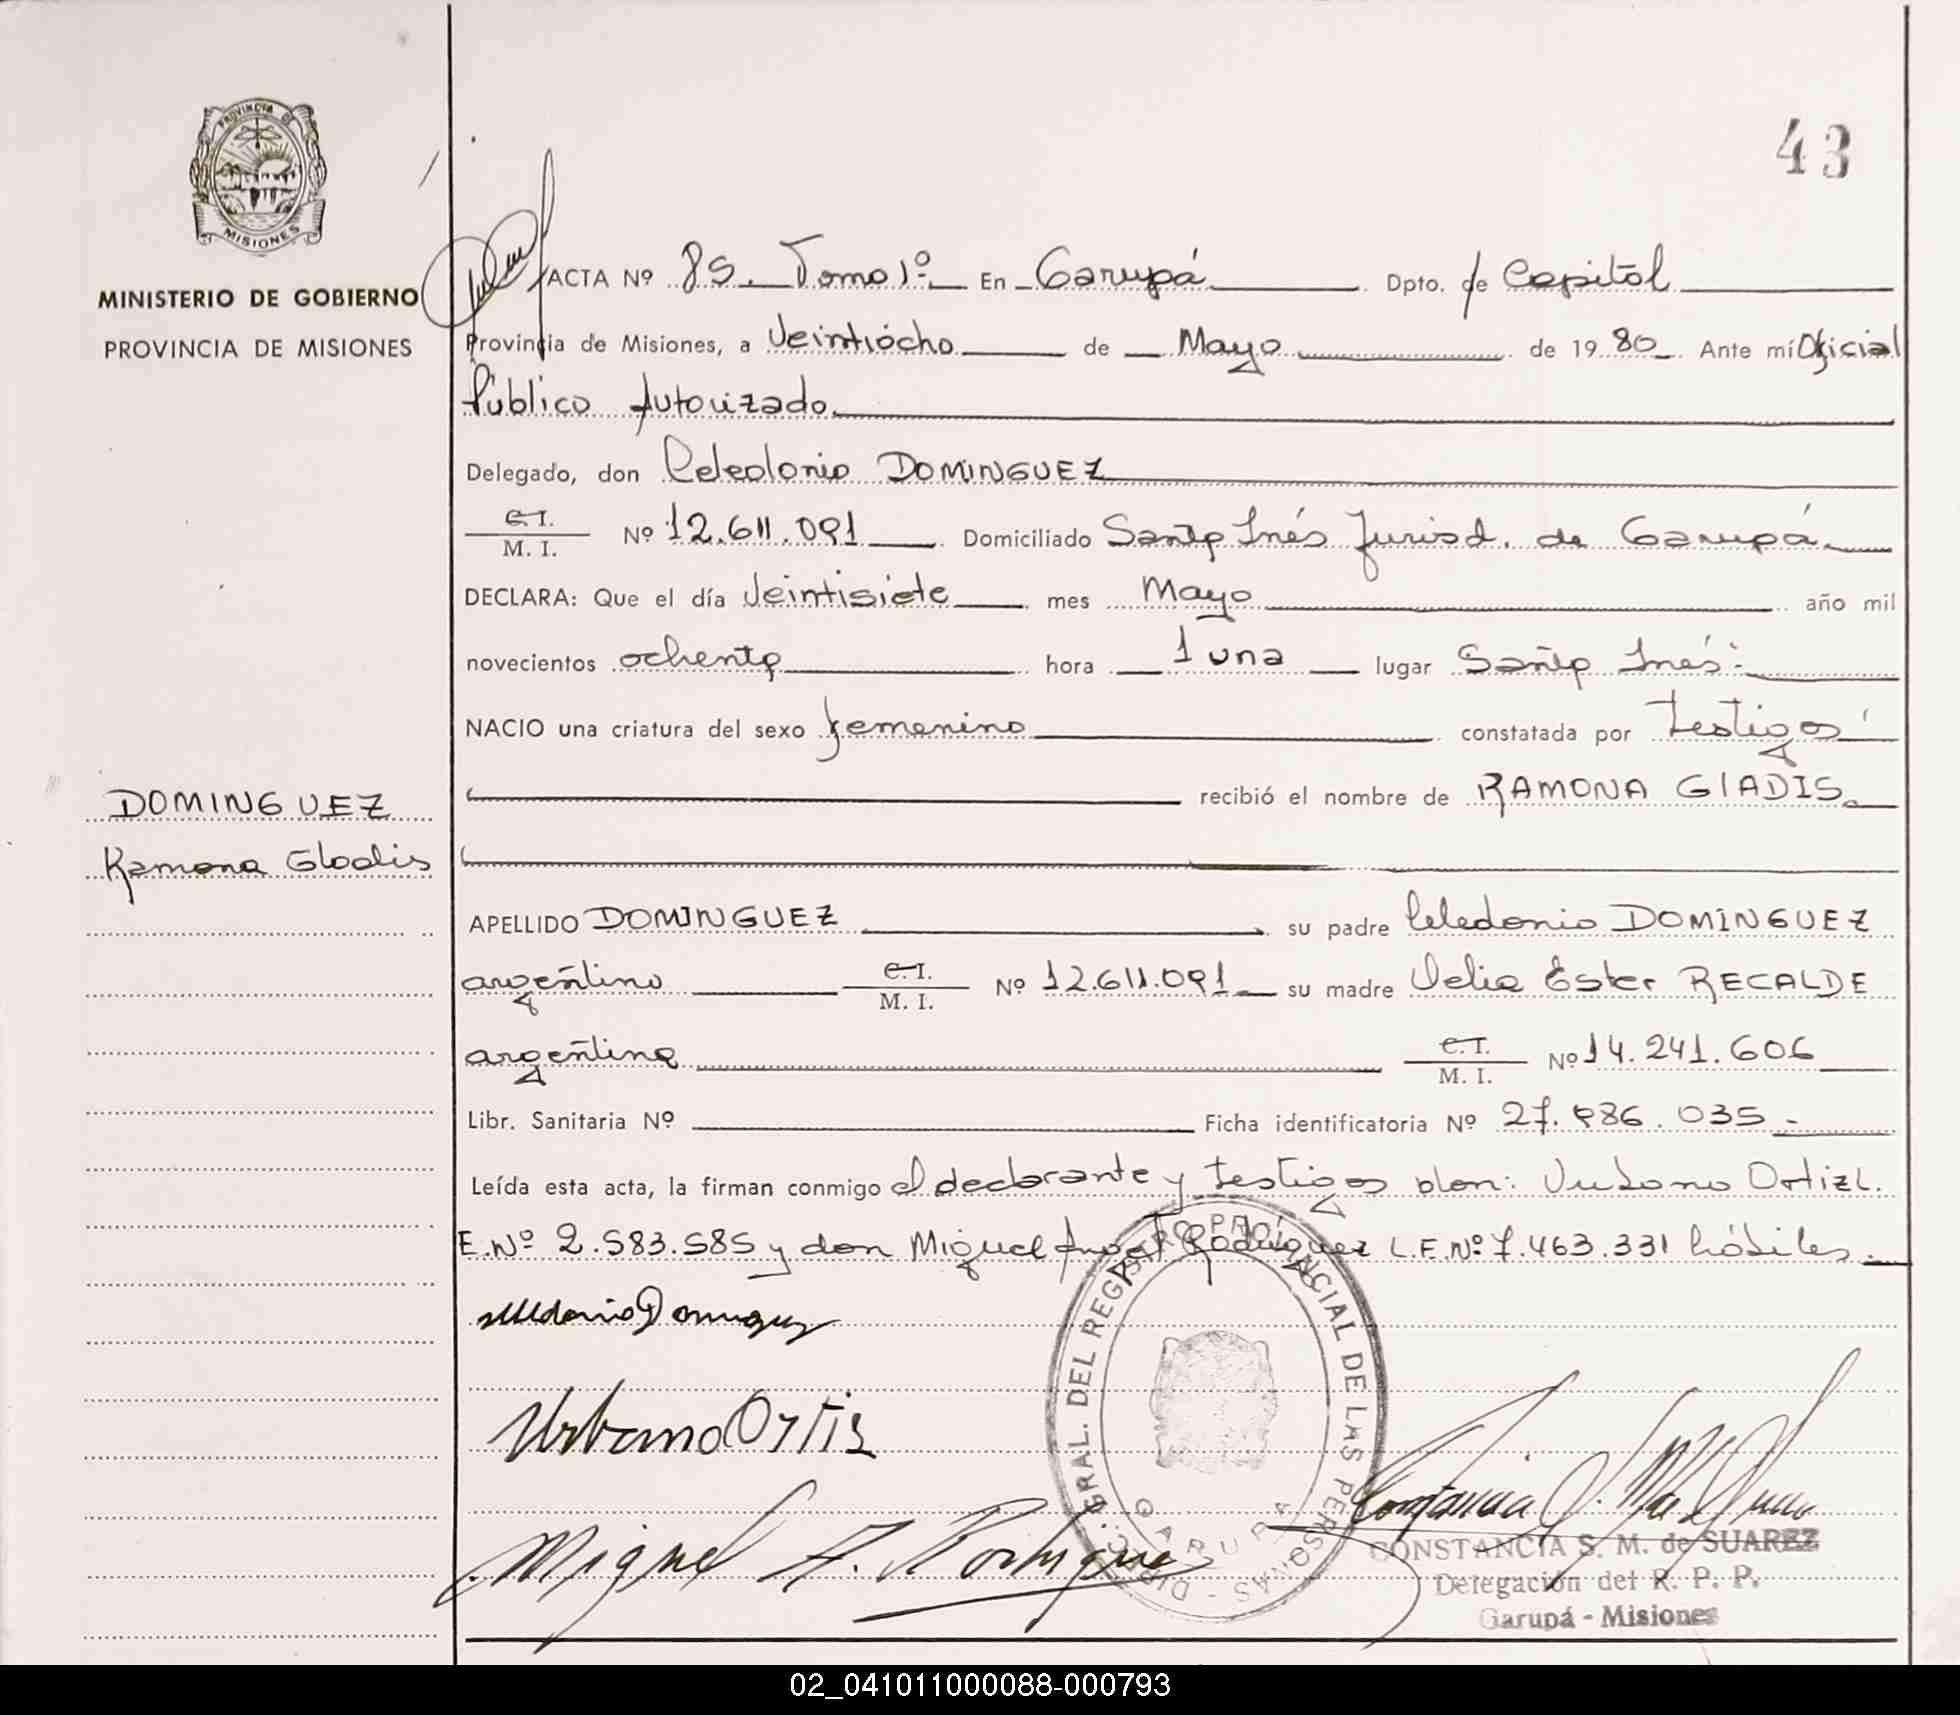 43
PROVINCIA D
MISIONES
MINISTERIO DE GOBIERNO
PROVINCIA DE MISIONES
ACTA Nº 85. Tomo 1º. En Garupá Dpto. de Capital
Provincia de Misiones, a Veintiocho de Mayo de 1980 Ante mí Oficial
Público Autorizado
Delegado, don Celedonio DOMINGUEZ
C.I. / M. I. Nº 12.611.091 Domiciliado Santa Inés Jurisd. de Garupá
DECLARA: Que el día Veintisiete mes Mayo año mil
novecientos ochenta hora 1 una lugar Santa Inés
NACIO una criatura del sexo femenino constatada por testigos
recibió el nombre de RAMONA GlADIS
DOMINGUEZ
Ramona Gladis
APELLIDO DOMINGUEZ su padre Celedonio DOMINGUEZ
argentino C.I. / M. I. Nº 12.611.091 su madre Velia Ester RECALDE
argentina C.I. / M. I. Nº 14.241.606
Libr. Sanitaria Nº Ficha identificatoria Nº 27.986.035.-
Leída esta acta, la firman conmigo el declarante y testigos don: Ortiz L.
E. Nº 2.583.585 y don Miguel Angel Rodriguez L.E.Nº 7.463.331 hábiles.
Celedonio Dominguez
Urbano Ortis
Miguel A. Rodriguez
GRAL. DEL REGISTRO PROVINCIAL DE LAS PERSONAS - DIREC
GARUPA
CONSTANCIA S. M. de SUAREZ
Delegación del R. P. P.
Garupá - Misiones
02_041011000088-000793